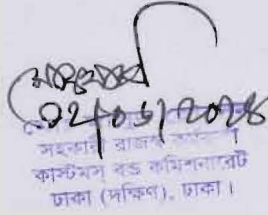 ০২/০৬/২০২৪
সহকারী রাজস্ব কর্মকর্তা
কাস্টমস বন্ড কমিশনারেট
ঢাকা (দক্ষিণ), ঢাকা।